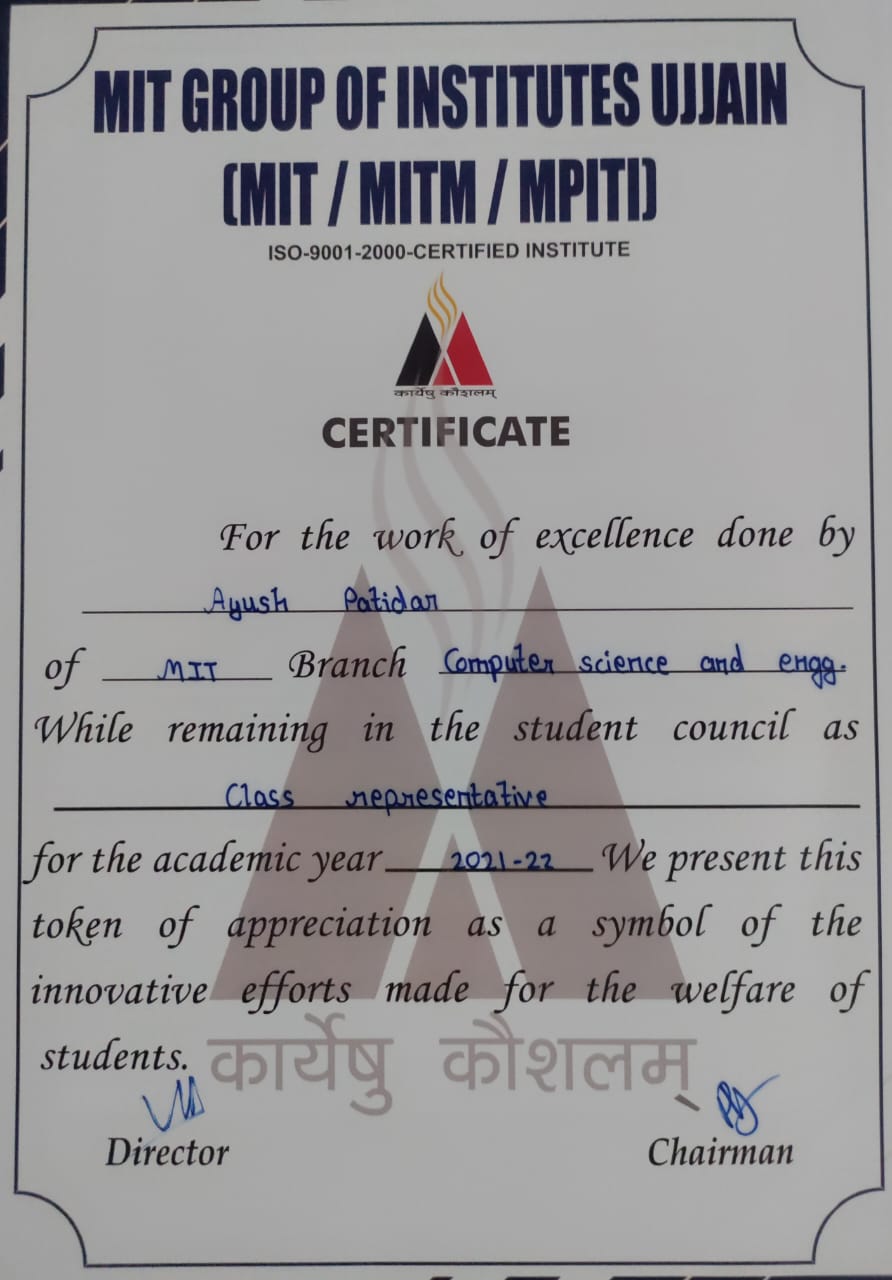 MIT GROUP OF INSTITUTES UJJAIN
(MIT / MITM / MPITI)
ISO-9001-2000-CERTIFIED INSTITUTE
कार्येषु कौशलम्
CERTIFICATE
For the work of excellence done by
Ayush Patidar
of MIT Branch Computer science and engg.
While remaining in the student council as
Class representative
for the academic year 2021-22 We present this
token of appreciation as a symbol of the
innovative efforts made for the welfare of
students.
कार्येषु कौशलम्
Director Chairman